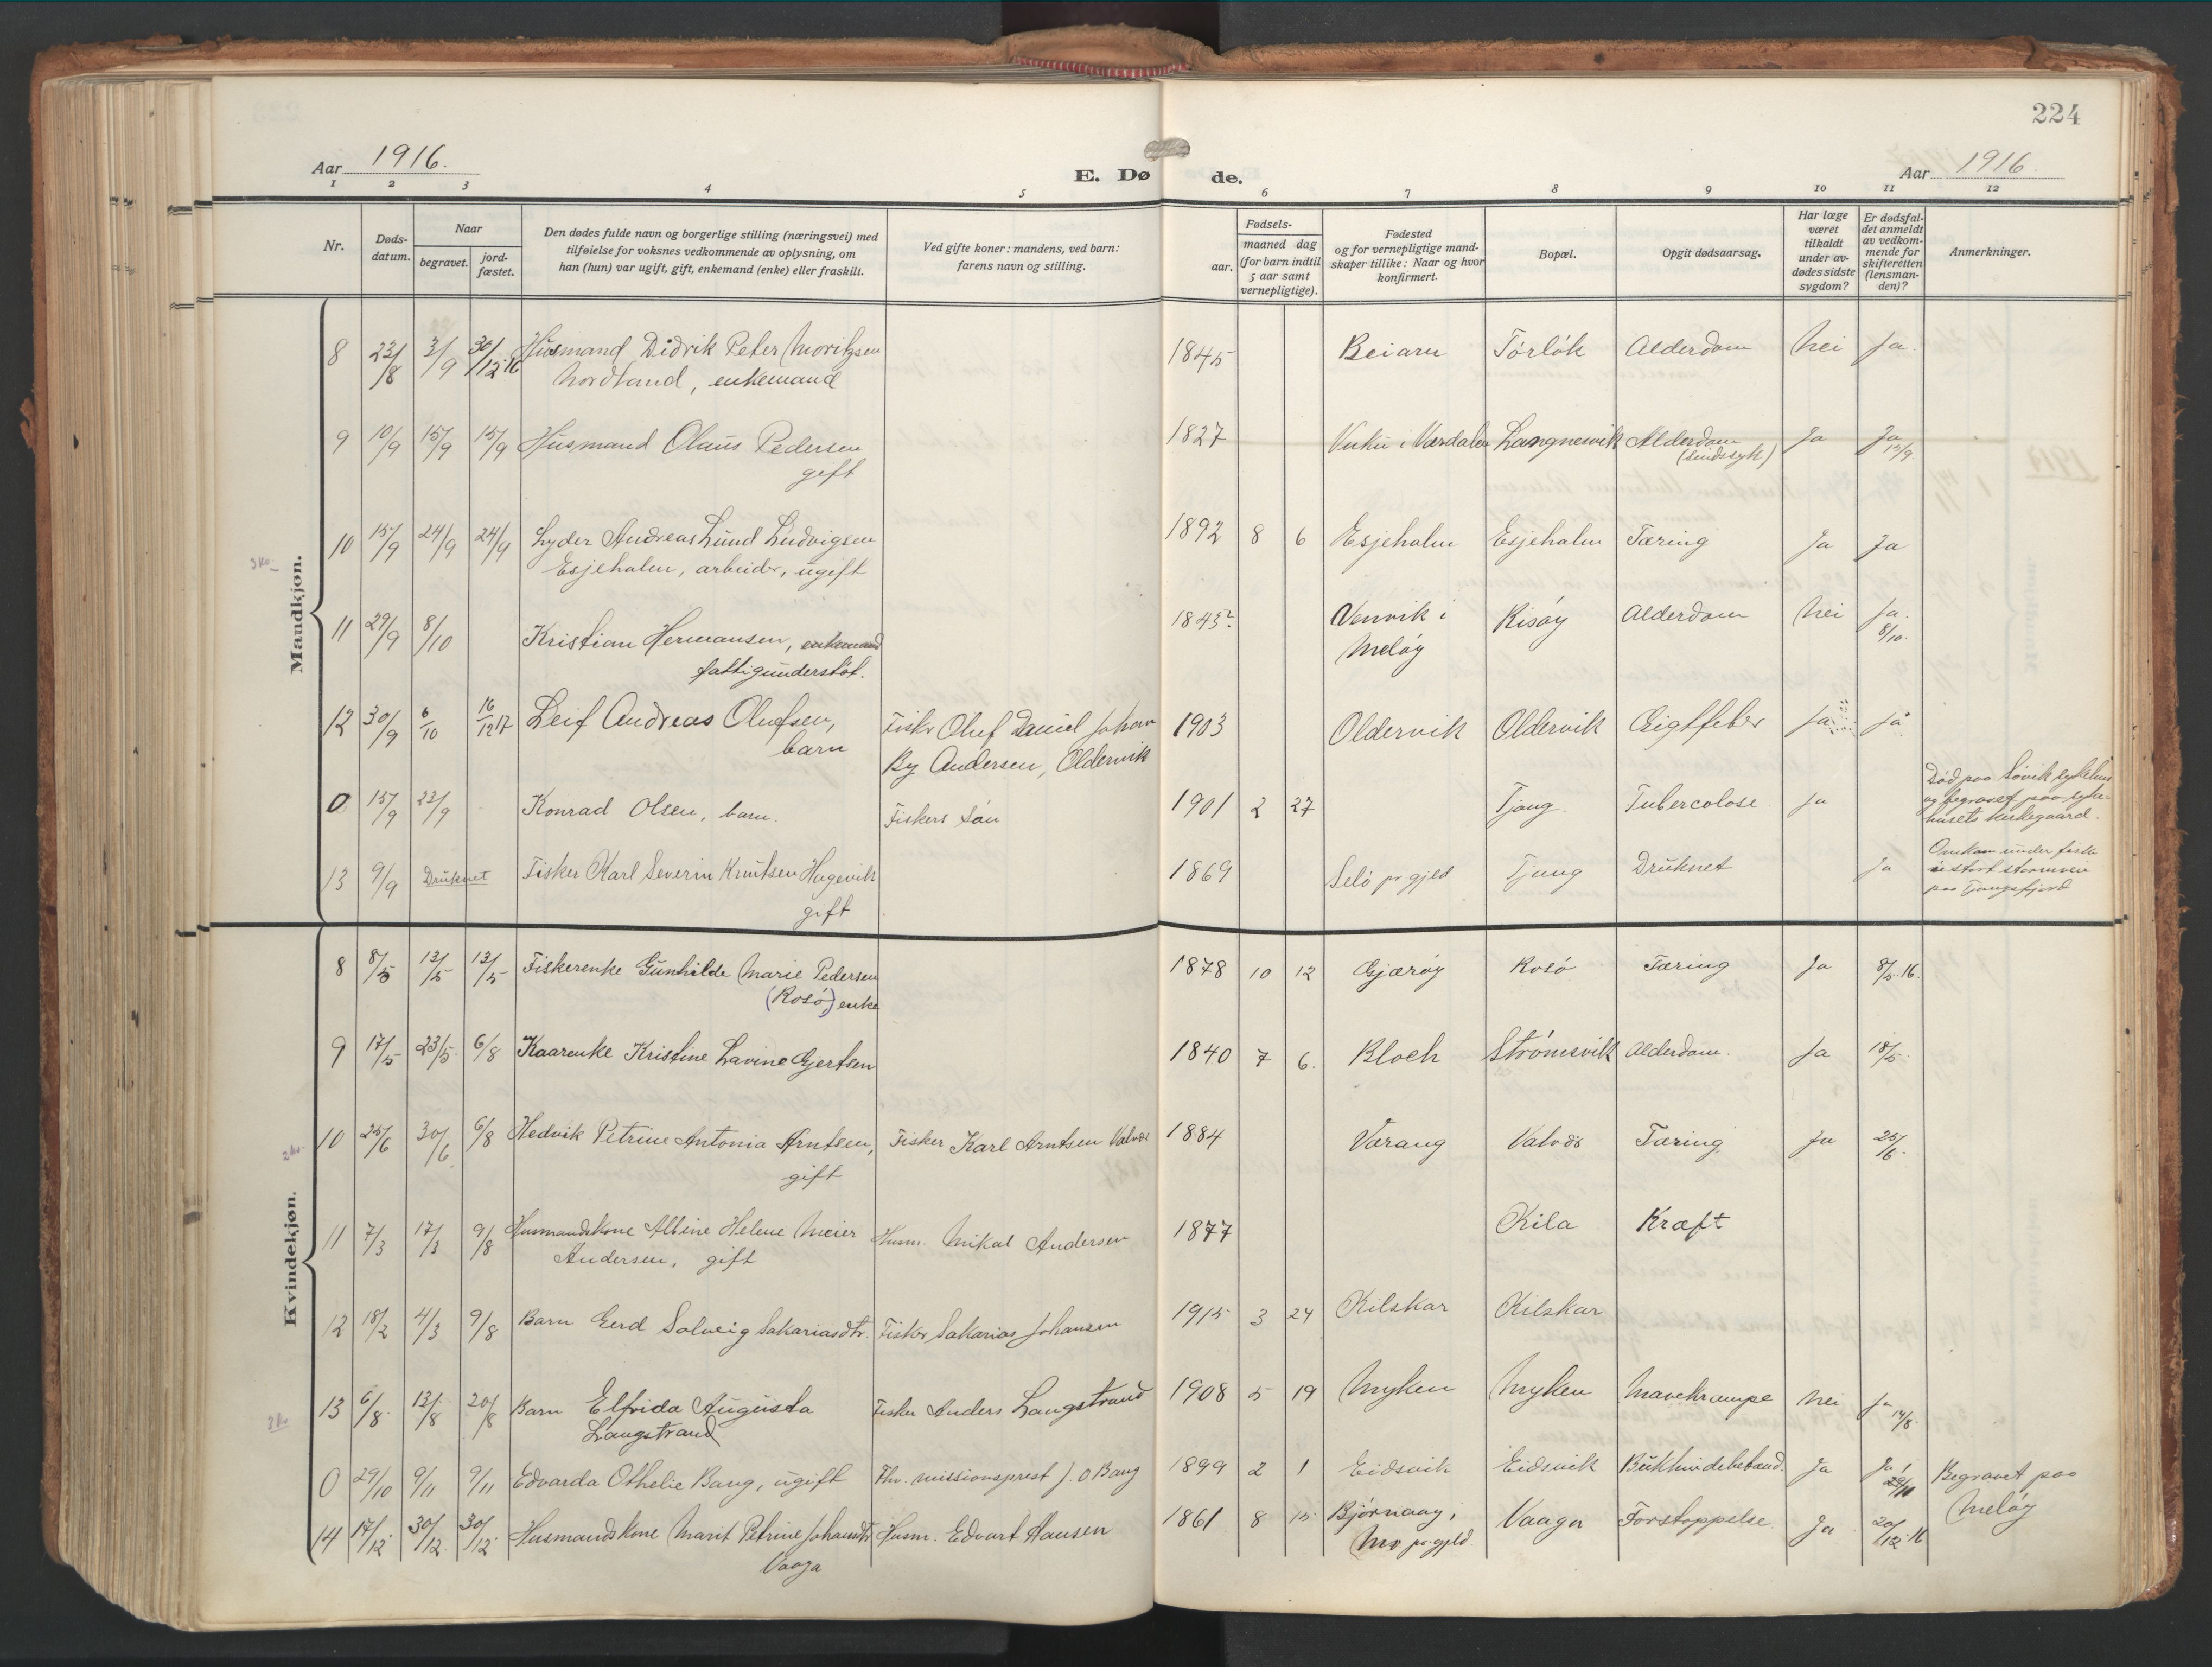 224
Aar 1916.
E. Døde.
Aar 1916.
1 2 3 4 5 6 7 8 9 10 11 12
Nr.
Døds-
datum.
Naar
begravet.
jord-
fæstet.
Den dødes fulde navn og borgerlige stilling (næringsvei) med
tilføielse for voksnes vedkommende av oplysning, om
han (hun) var ugift, gift, enkemand (enke) eller fraskilt.
Ved gifte koner: mandens, ved barn:
farens navn og stilling.
Fødsels-
aar.
maaned dag
(for barn indtil
5 aar samt
vernepligtige).
Fødested
og for vernepligtige mand-
skaper tillike: Naar og hvor
konfirmert.
Bopæl.
Opgit dødsaarsag.
Har læge
været
tilkaldt
under av-
dødes sidste
sygdom?
Er dødsfal-
det anmeldt
av vedkom-
mende for
skifteretten
(lensman-
den)?
Anmerkninger.
Mandkjøn.
8 23/8 3/9 30/12 16 Husmand Didrik Peter Moritzsen 1845 Beiarn Törlök Alderdom Nei Ja.
Nordland, enkemand
9 10/9 15/9 15/9 Husmand Olaus Pedersen 1827 Vuku i Værdalen Langnesvik Alderdom Ja Ja
gift (sindssyk) 15/9.
10 15/9 24/9 24/9 Lyder Andreas Lund Ludvigsen 1892 8 6 Esjeholm Esjeholm Tæring Ja Ja
Esjeholm, arbeider, ugift
11 29/9 8/10 Kristian Hermansen, enkemand 1845? Venvik i Risøy Alderdom Nei Ja.
fattigunderstöt. Meløy 8/10.
12 30/9 6/10 16/12 17 Leif Andreas Olufsen, Fisker Oluf Daniel Johan 1903 Oldervik Oldervik Gigtfeber Ja Ja
barn By Andersen, Oldervik
0 15/9 23/9 Konrad Olsen, barn. Fiskers Sön 1901 2 27 Tjong. Tubercolose Ja Död paa Søvik sykehus
og begravet paa syke-
husets kirkegaard.
13 9/9 Druknet Fisker Karl Severin Knutsen Hagevik 1869 Selö pr gjeld Tjong Druknet Ja Omkom under fiske
gift i stort stormvei
paa Tjongsfjord
Kvindekjøn.
8 8/5 13/5 13/5 Fiskerenke Gunhilde Marie Pedersen 1878 10 12 Gjærøy Rosö Tæring Ja 8/5 16.
(Rosö) enke
9 17/5 23/5. 6/8 Kaarenke Kristine Lavine Gjertsen 1840 7 6. Bloch Strömsvik Alderdom. Ja 18/5
10 25/6 30/6. 6/8 Hedvik Petrine Antonia Arntsen, Fisker Karl Arntsen Valvør 1884 Værang Valvør Tæring Ja 25/6.
gift
11 7/3 17/3 9/8 Husmandskone Albine Helene Meier Husm. Mikal Andersen 1877 Kila Kræft
Andersen, gift
12 18/2 4/3 9/8 Barn Gerd Solveig Sakariasdtr. Fisker Sakarias Johansen 1915 3 24 Kilskar Kilskar
13 6/8. 13/8 20/8 Barn Elfrida Augusta Fisker Anders Langstrand 1908 5 19 Myken Myken Mavekrampe Nei Ja
Langstrand 14/8
0 29/10 9/11 9/11 Edvarda Othelie Bang, ugift Fhv. missionsprest J. O Bang 1899 2 1 Eidsvik Eidsvik Bukhindebetænd. Ja Ja Begravet paa
Meløy
14 17/12 30/12 30/12 Husmandskone Marit Petrine Johansdtr Husm. Edvart Hansen 1861 8 15 Bjørnaag, Vaaga Forstoppelse. Ja 20/12 16
Vaaga Mo pr.gjeld.